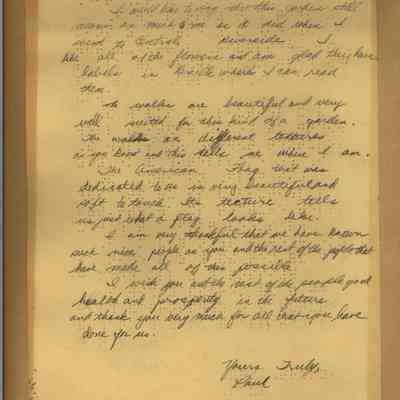 I would like to say that this garden still
means as much to me as it did when I
went to Central Riverside. I
like all of the flowers and am glad they have
labels in Braille where I can read
them.
The walks are beautiful and very
well suited for this kind of a garden.
The walks are different textures
as you know and this tells me where I am.
The American Flag that was
dedicated to us is very beautiful and
soft to touch. Its texture tells
us just what a flag looks like.
I am very thankful that we have known
such nice people as you and the rest of the people that
have made all of this possible
I wish you and the rest of the people good
health and prosperity in the future
and thank you very much for all that you have
done for us.
Yours Truly,
Paul